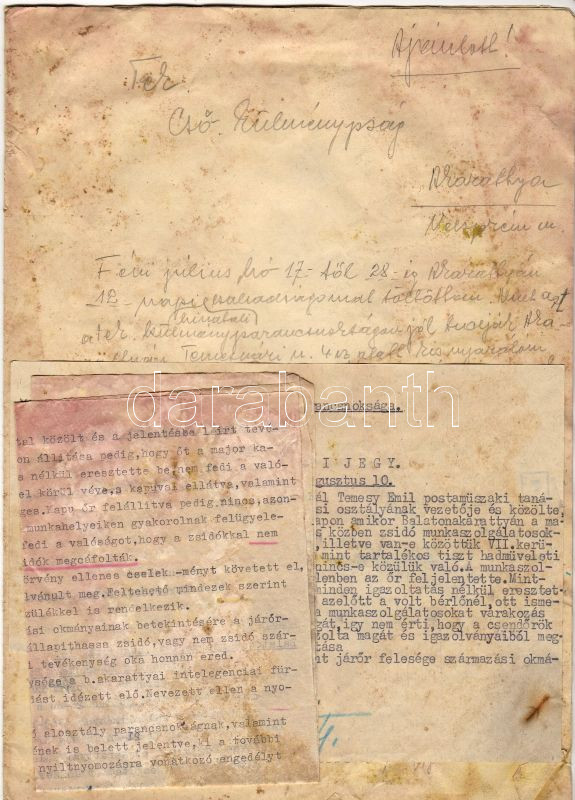 Ajánlott!
Tek.
Cső. Különítmény
Akarattya
Veszprém m.
F. évi július hó 17-től 28-ig Akarattyán
12 napi szabadságomat töltöttem. Mint azt
a tek.
darabanth
rancsnoksága.
I JEGY.
gusztus 10.
ál Temesy Emil postaműszaki taná-
si osztályának vezetője és közölte,
apon amikor Balatonakarattyán a ma-
s közben zsidó munkaszolgálatosok-
, illetve van-e közöttük VII.kerü-
mint tartalékos tiszt hadműveleti
nincs-e közülük való.A munkaszol-
lenben az őr feljelentette.Mint-
minden igazoltatás nélkül eresztet-
azelőtt a volt bérlőnél, ott isme-
a munkaszolgálatosokat várakozás
gát, így nem érti, hogy a csendőrök
zolta magát és igazolványaiból meg-
tása
nt járőr felesége származási okmá-
tal közölt és a jelentésbe leírt tevé-
on állítása pedig, hogy őt a major ka-
s nélkül eresztette be,nem fedi a való-
el körül véve,s kapuval ellátva,valamint
ges.Kapu őr felállitva pedig nincs,azon-
munkahelyeiken gyakorolnak felügyele-
fedi a valóságot,hogy a zsidókkal nem
idók megcáfolták.
örvény ellenes cselek-ményt követett el,
lvánult meg.Feltehető mindezek szerint
zülékkel is rendelkezik.
isi okmányainak betekintésére a járőr-
állapithassa zsidó,vagy nem zsidó szár-
i tevékenység oka honnan ered.
ysége a b.akarattyai intelegenciai für-
ást idézett elő.Nevezett ellen a nyo-
ó alosztály parancsnokságnak,valamint
ének is belett jelentve,ki a további
nyiltnyomozásra vonatkozó engedélyt